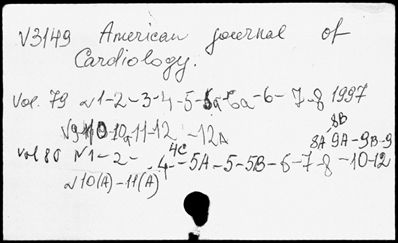 V3149 American journal of
Cardiology.
Vol. 79 N1-2-3-4-5-5a-6a-6-7-8 1997
N9-10-10a-11-12-12A
8B
vol 80 N1-2-4-4C-5A-5-5B-6-7-8-8A-9A-9B-9-10-12
N10(A)-11(A)